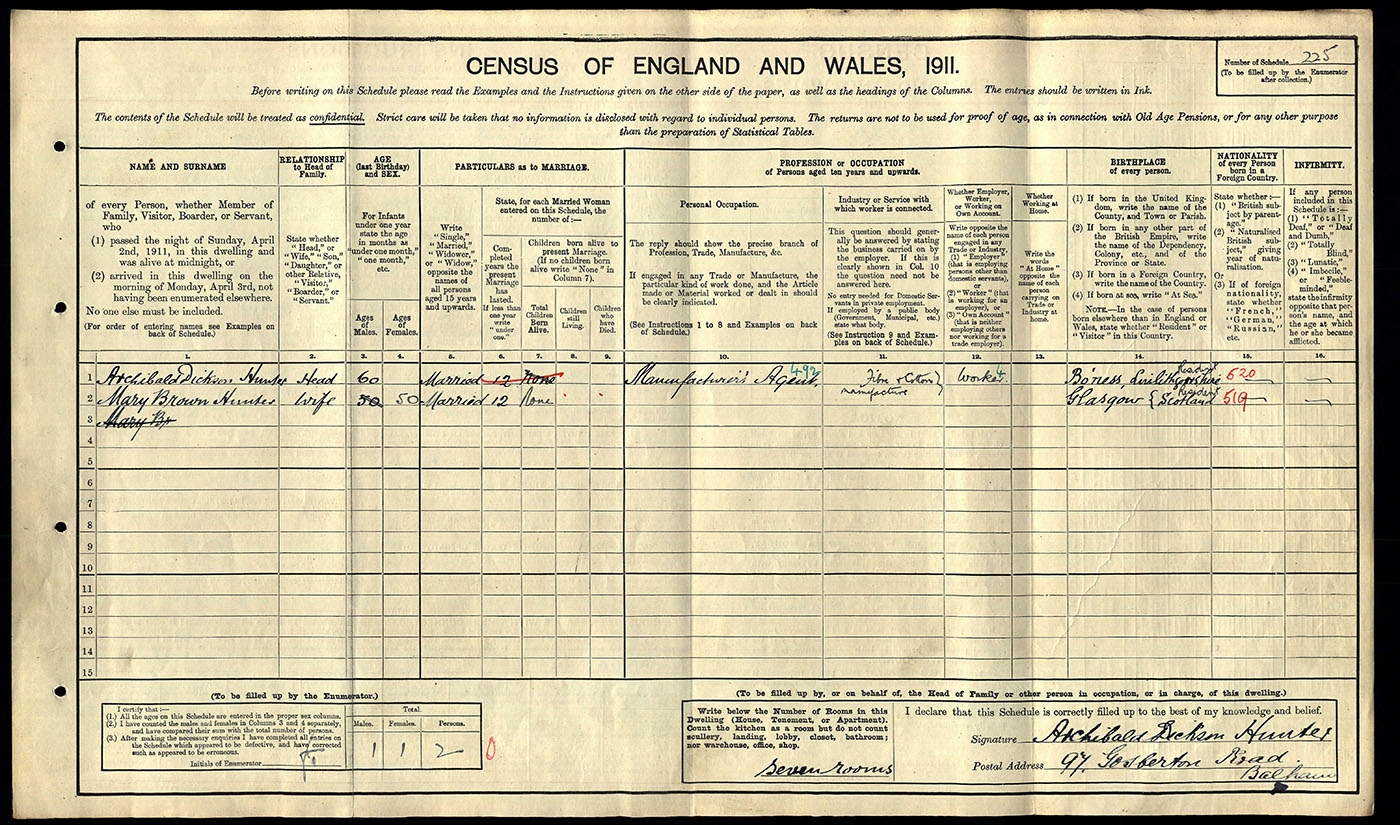 CENSUS OF ENGLAND AND WALES, 1911.
Number of Schedule 225
(To be filled up by the Enumerator
after collection.)
Before writing on this Schedule please read the Examples and the Instructions given on the other side of the paper, as well as the headings of the Columns. The entries should be written in Ink.
The contents of the Schedule will be treated as confidential. Strict care will be taken that no information is disclosed with regard to individual persons. The returns are not to be used for proof of age, as in connection with Old Age Pensions, or for any other purpose
than the preparation of Statistical Tables.
NAME AND SURNAME
of every Person, whether Member of
Family, Visitor, Boarder, or Servant,
who
(1) passed the night of Sunday, April
2nd, 1911, in this dwelling and
was alive at midnight, or
(2) arrived in this dwelling on the
morning of Monday, April 3rd, not
having been enumerated elsewhere.
No one else must be included.
(For order of entering names see Examples on
back of Schedule.)
RELATIONSHIP
to Head of
Family.
State whether
"Head," or
"Wife," "Son,"
"Daughter," or
other Relative,
"Visitor,"
"Boarder," or
"Servant."
AGE
(last Birthday)
and SEX.
For Infants
under one year
state the age
in months as
"under one month,"
"one month,"
etc.
Ages
of
Males.
Ages
of
Females.
PARTICULARS as to MARRIAGE.
Write
"Single,"
"Married,"
"Widower,"
or "Widow,"
opposite the
names of
all persons
aged 15 years
and upwards.
State, for each Married Woman
entered on this Schedule, the
number of:—
Com-
pleted
years the
present
Marriage
has
lasted.
If less than
one year
write
"under
one."
Children born alive to
present Marriage.
(If no children born
alive write "None" in
Column 7).
Total
Children
Born
Alive.
Children
still
Living.
Children
who
have
Died.
PROFESSION or OCCUPATION
of Persons aged ten years and upwards.
Personal Occupation.
The reply should show the precise branch of
Profession, Trade, Manufacture, &c.
If engaged in any Trade or Manufacture, the
particular kind of work done, and the Article
made or Material worked or dealt in should
be clearly indicated.
(See Instructions 1 to 8 and Examples on back
of Schedule.)
Industry or Service with
which worker is connected.
This question should gener-
ally be answered by stating
the business carried on by
the employer. If this is
clearly shown in Col. 10
the question need not be
answered here.
No entry needed for Domestic Ser-
vants in private employment.
If employed by a public body
(Government, Municipal, etc.)
state what body.
(See Instruction 9 and Exam-
ples on back of Schedule.)
Whether Employer,
Worker,
or Working on
Own Account.
Write opposite the
name of each person
engaged in any
Trade or Industry,
(1) "Employer"
(that is employing
persons other than
domestic servants),
or
(2) "Worker" (that
is working for an
employer), or
(3) "Own Account"
(that is neither
employing others
nor working for a
trade employer).
Whether
Working at
Home.
Write the
words
"At Home"
opposite the
name of each
person
carrying on
Trade or
Industry at
home.
BIRTHPLACE
of every person.
(1) If born in the United King-
dom, write the name of the
County, and Town or Parish.
(2) If born in any other part of
the British Empire, write
the name of the Dependency,
Colony, etc., and of the
Province or State.
(3) If born in a Foreign Country,
write the name of the Country.
(4) If born at sea, write "At Sea."
NOTE.—In the case of persons
born elsewhere than in England or
Wales, state whether "Resident" or
"Visitor" in this Country.
NATIONALITY
of every Person
born in a
Foreign Country.
State whether:—
(1) "British sub-
ject by parent-
age."
(2) "Naturalised
British sub-
ject," giving
year of natu-
ralisation.
Or
(3) If of foreign
nationality,
state whether
"French,"
"German,"
"Russian,"
etc.
INFIRMITY.
If any person
included in this
Schedule is:—
(1) "Totally
Deaf," or "Deaf
and Dumb,"
(2) "Totally
Blind,"
(3) "Lunatic,"
(4) "Imbecile,"
or "Feeble-
minded,"
state the infirmity
opposite that per-
son's name, and
the age at which
he or she became
afflicted.
1. 2. 3. 4. 5. 6. 7. 8. 9. 10. 11. 12. 13. 14. 15. 16.
1 Archibald Dickson Hunter Head 60 Married 12 None Manufacturer's Agent, 492 Fibre & Cotton Worker 4 Bo'ness, Linlithgowshire Resident 620
manufacture
2 Mary Brown Hunter Wife 50 50 Married 12 None Glasgow Scotland Resident 519
3 Mary Br
4
5
6
7
8
9
10
11
12
13
14
15
(To be filled up by the Enumerator.)
I certify that:—
(1.) All the ages on this Schedule are entered in the proper sex columns.
(2.) I have counted the males and females in Columns 3 and 4 separately,
and have compared their sum with the total number of persons.
(3.) After making the necessary enquiries I have completed all entries on
the Schedule which appeared to be defective, and have corrected
such as appeared to be erroneous.
Initials of Enumerator
Total.
Males. Females. Persons.
1 1 2 0
(To be filled up by, or on behalf of, the Head of Family or other person in occupation, or in charge, of this dwelling.)
Write below the Number of Rooms in this
Dwelling (House, Tenement, or Apartment).
Count the kitchen as a room but do not count
scullery, landing, lobby, closet, bathroom;
nor warehouse, office, shop.
seven rooms
I declare that this Schedule is correctly filled up to the best of my knowledge and belief.
Signature Archibald Dickson Hunter
Postal Address 97, Gosberton Road.
Balham